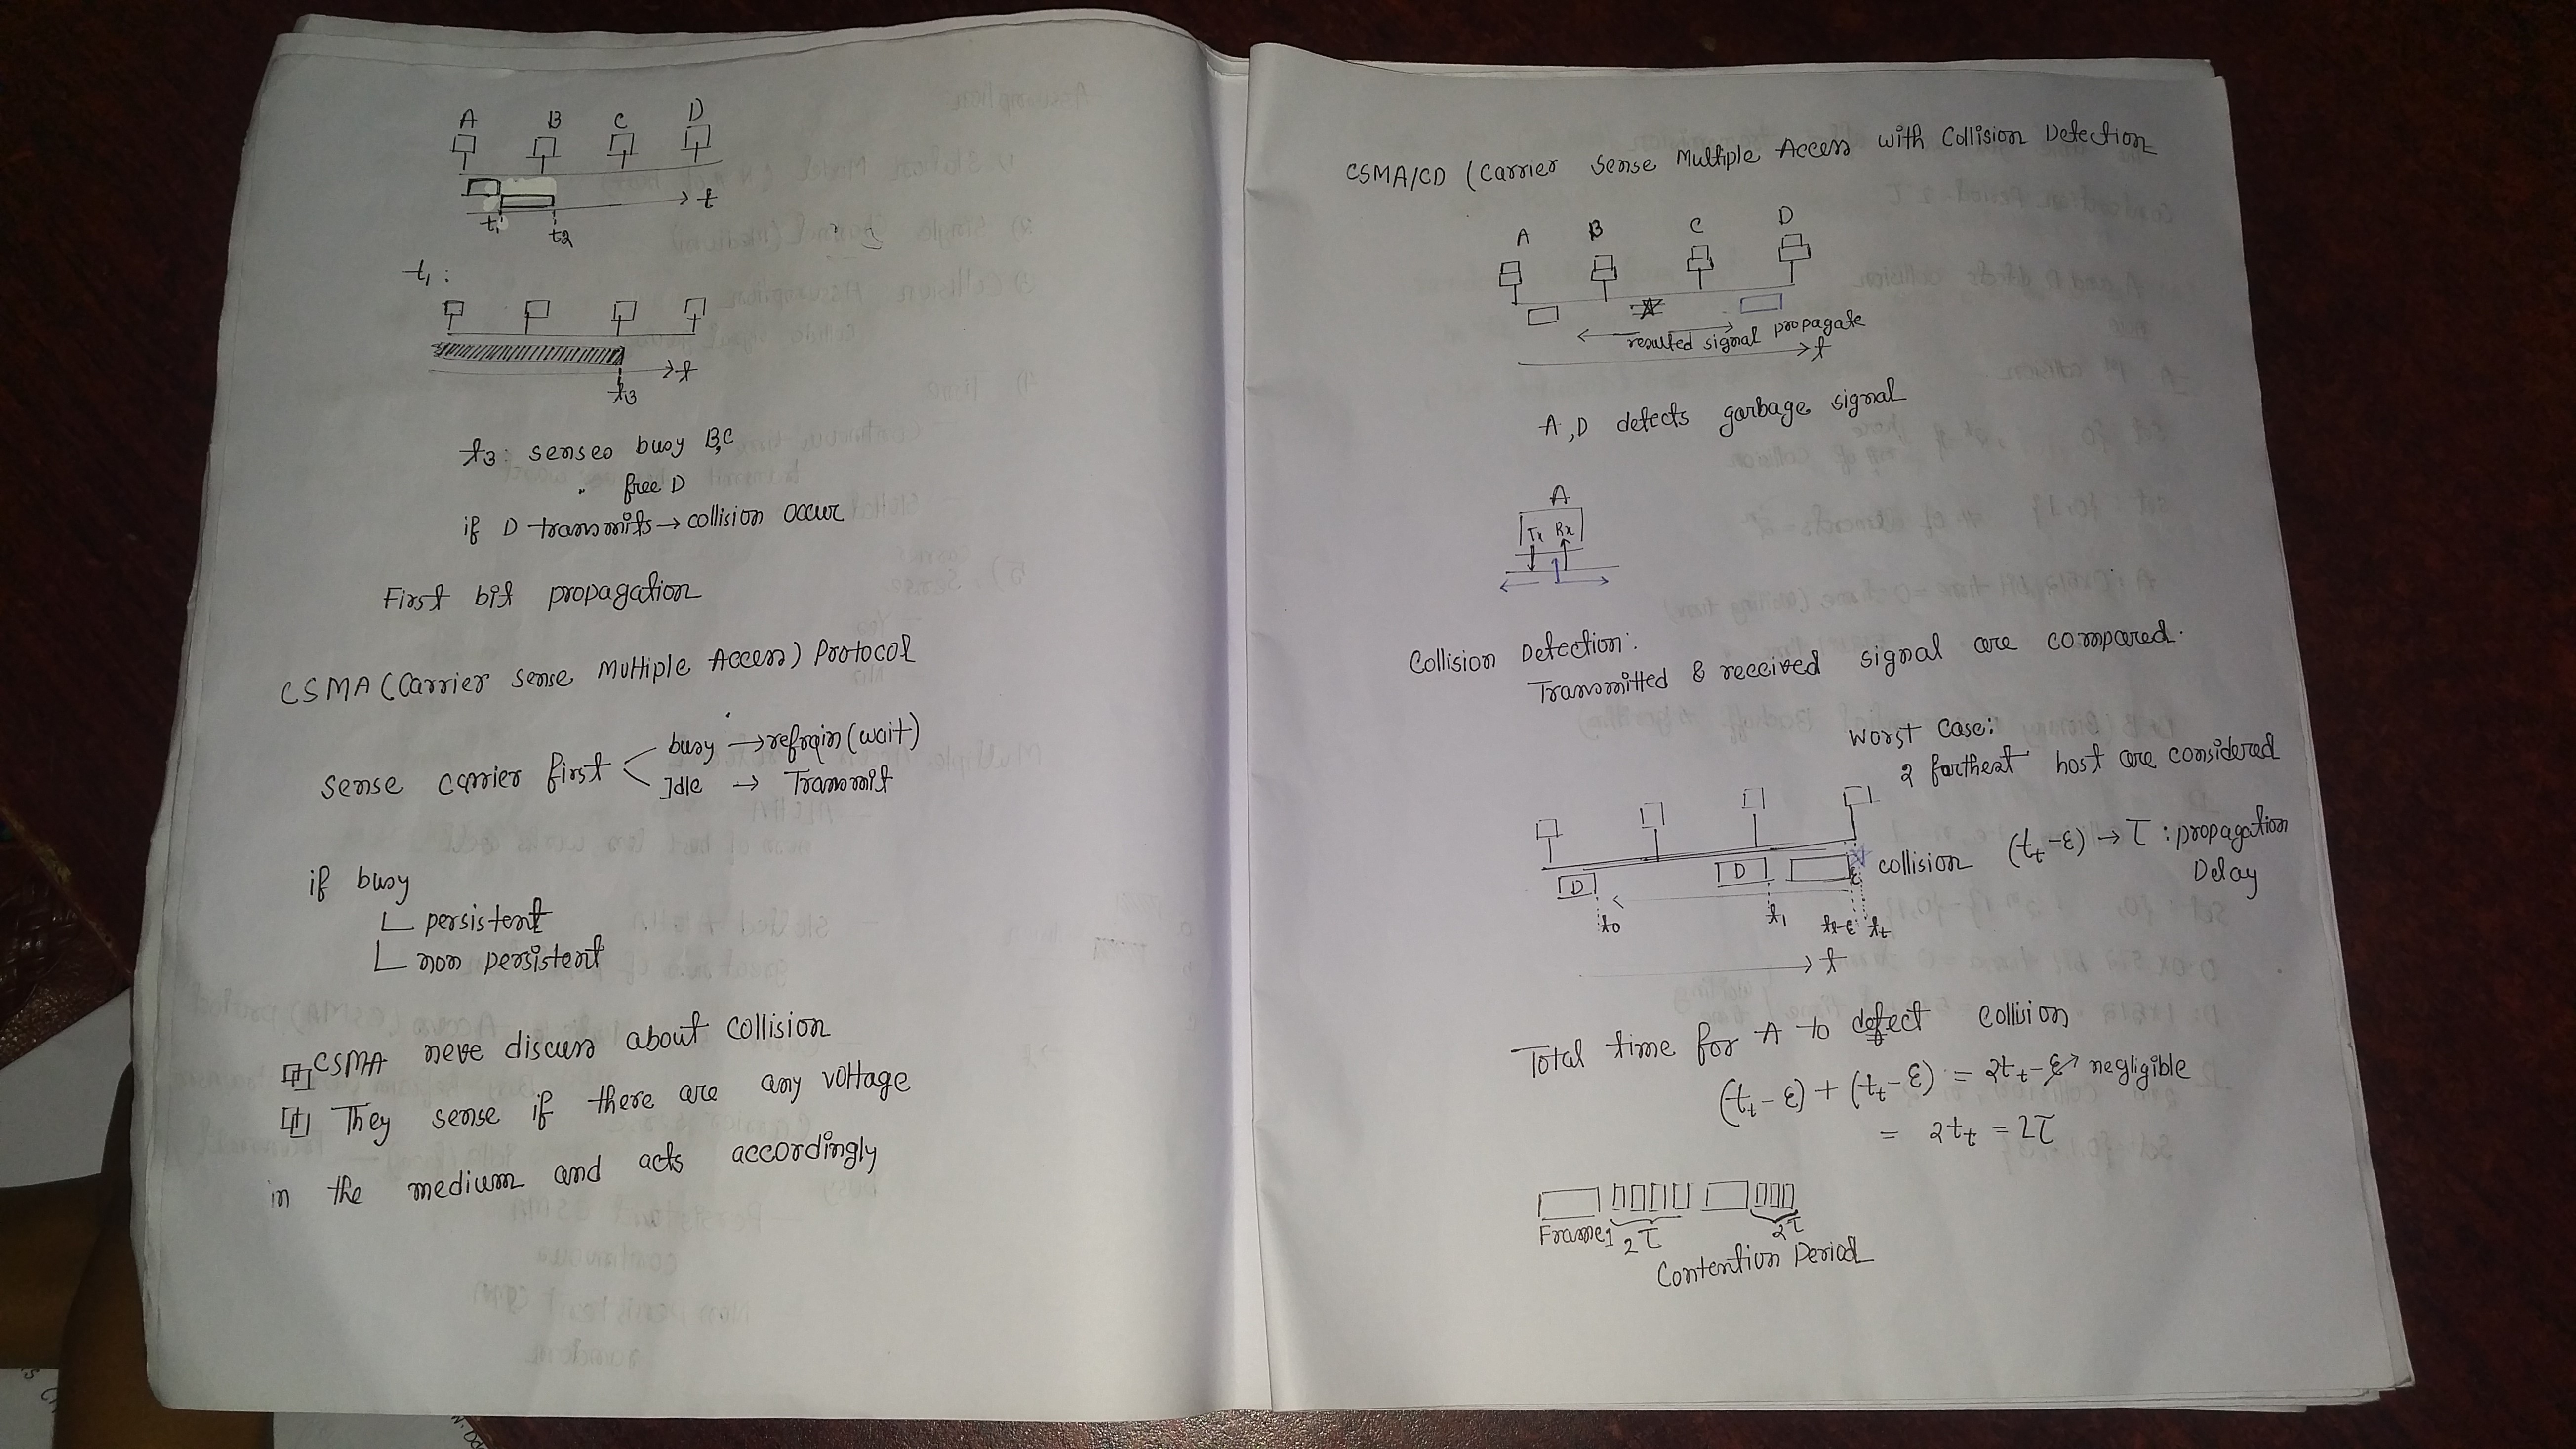 A B C D
t1 t2 → t
t1:
→ t
t3
t3: senseo busy B,C
free D
if D transmits → collision occur
First bit propagation
CSMA (Carrier sense Multiple Access) Protocol
sense carrier first
busy → refrain (wait)
Idle → Transmit
if busy
persistent
non persistent
CSMA neve discuss about collision
They sense if there are any voltage
in the medium and acts accordingly
CSMA/CD (Carrier Sense Multiple Access with Collision Detection
A B C D
resulted signal propagate
→ t
A, D detects garbage signal
A
Tx Rx
Collision Detection:
Transmitted & received signal are compared.
Worst Case:
2 farthest host are considered
D D ε collision (tt - ε) → τ : propagation
Delay
t0 t1 tt-ε tt
→ t
Total time for A to detect collision
(tt - ε) + (tt - ε) = 2tt - ε → negligible
= 2tt = 2τ
Frame1 2τ 2τ
Contention Period